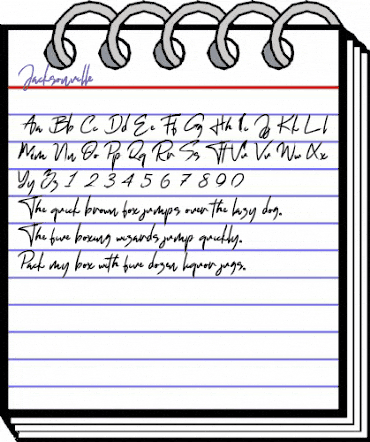 Jacksonville
Aa Bb Cc Dd Ee Ff Gg Hh Ii Jj Kk Ll
Mm Nn Oo Pp Qq Rr Ss Tt Uu Vv Ww Xx
Yy Zz 1 2 3 4 5 6 7 8 9 0
The quick brown fox jumps over the lazy dog.
The five boxing wizards jump quickly.
Pack my box with five dozen liquor jugs.